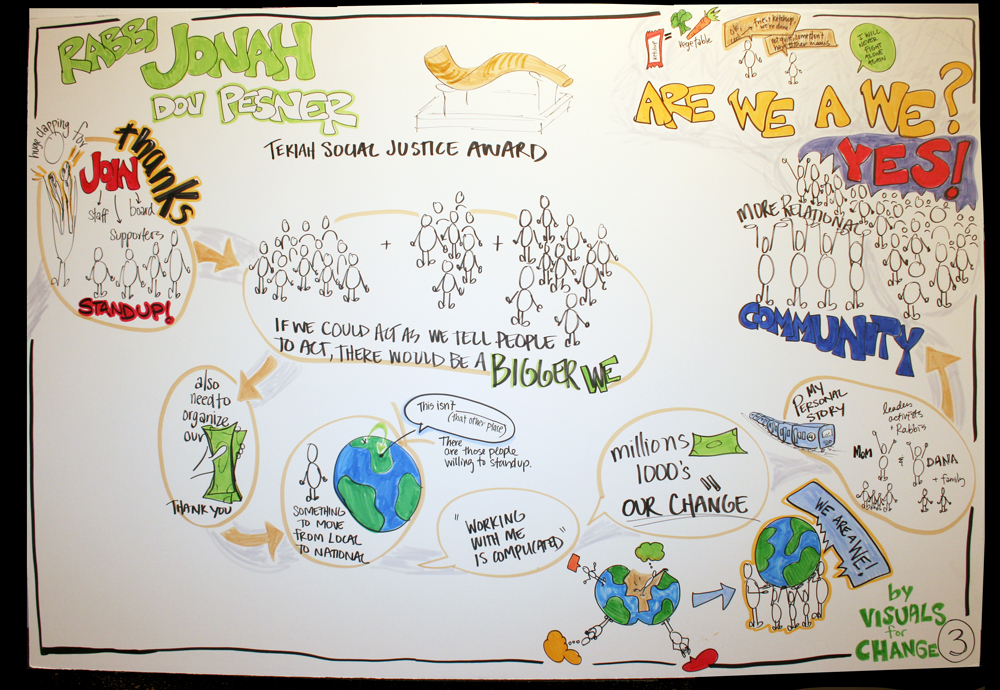 RABBI JONAH
DOV PESNER
TEKIAH SOCIAL JUSTICE AWARD
huge clapping for
JOIN
thanks
staff
board
supporters
STAND UP!
+
+
IF WE COULD ACT AS WE TELL PEOPLE
TO ACT, THERE WOULD BE A BIGGER WE
also
need to
organize
our
THANK YOU
SOMETHING
TO MOVE
FROM LOCAL
TO NATIONAL
This isn't
(that other place)
There
are those people
willing to stand up.
"WORKING
WITH ME
IS COMPLICATED"
millions
1000's
OUR CHANGE
MY
PERSONAL
STORY
leaders
activists
+ Rabbis
MOM
&
DANA
+ family
WE ARE A WE!
COMMUNITY
MORE RELATIONAL
YES!
ARE WE A WE?
= vegetable
I WILL
NEVER
FIGHT
ALONE
AGAIN
by
VISUALS
for
CHANGE
3